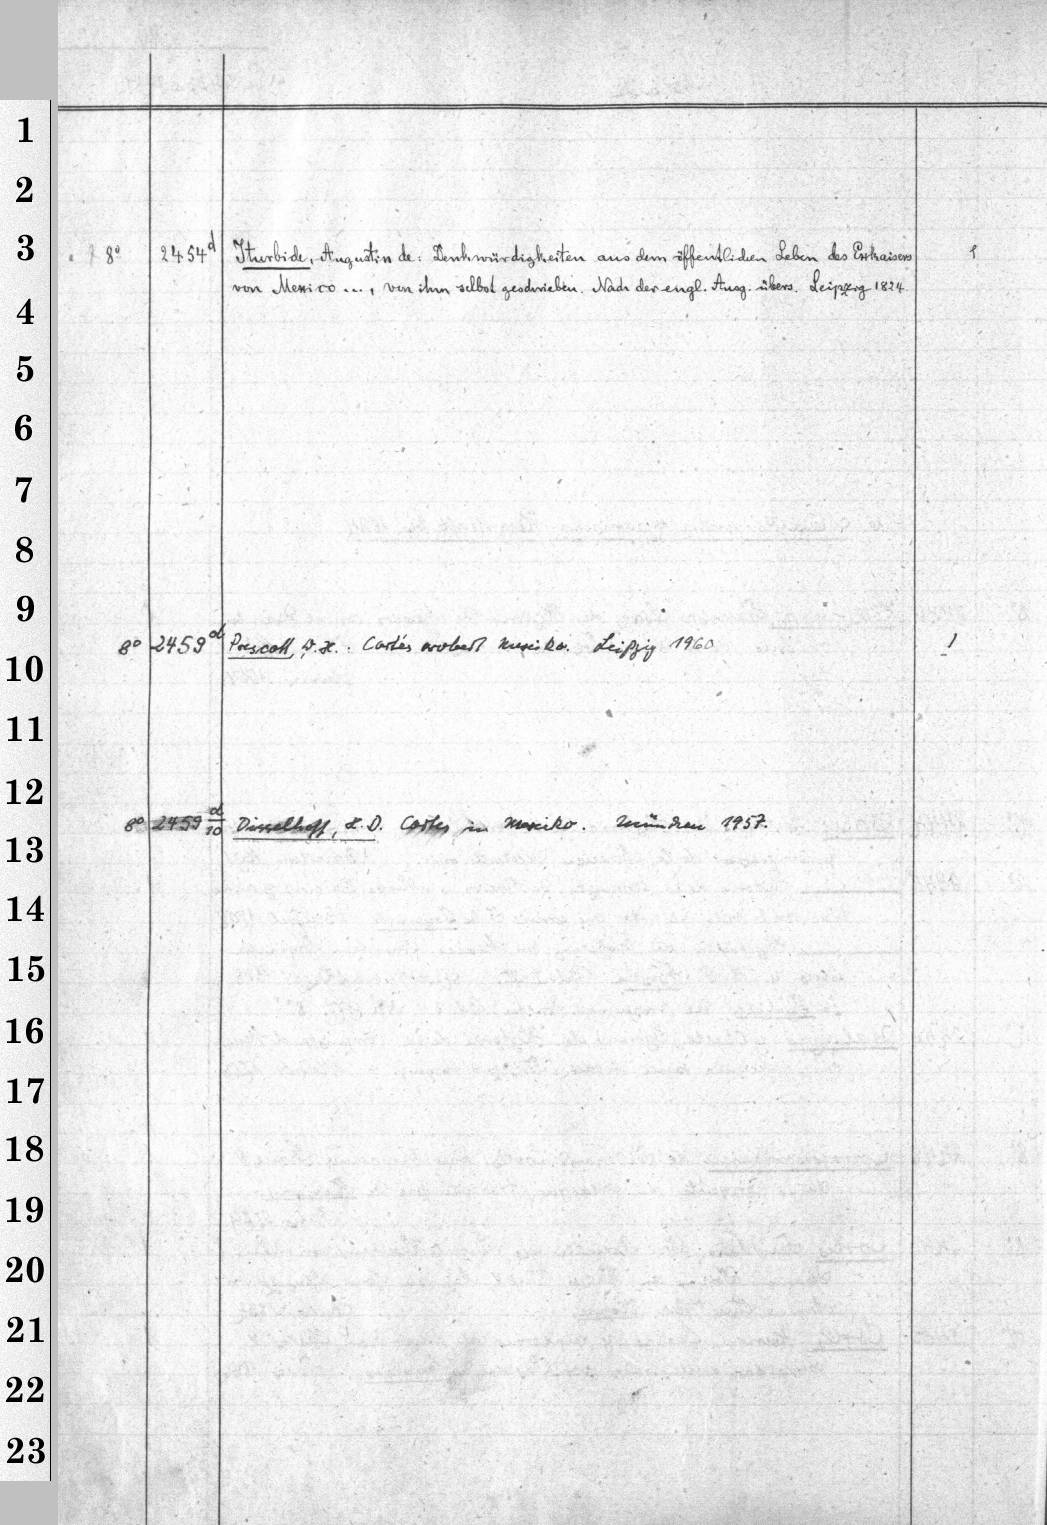 1
2
3
8° 2454d Iturbide, Augustin de: Denkwürdigkeiten aus dem öffentlichen Leben des Exkaisers 1
von Mexico ..., von ihm selbst geschrieben. Nach der engl. Ausg. übers. Leipzig 1824
4
5
6
7
8
9
8° 2459d Prescott, W. H.: Cortés erobert Mexiko. Leipzig 1960 1
10
11
12
8° 2459 d/10 Disselhoff, H. D. Cortes in Mexiko. München 1957.
13
14
15
16
17
18
19
20
21
22
23